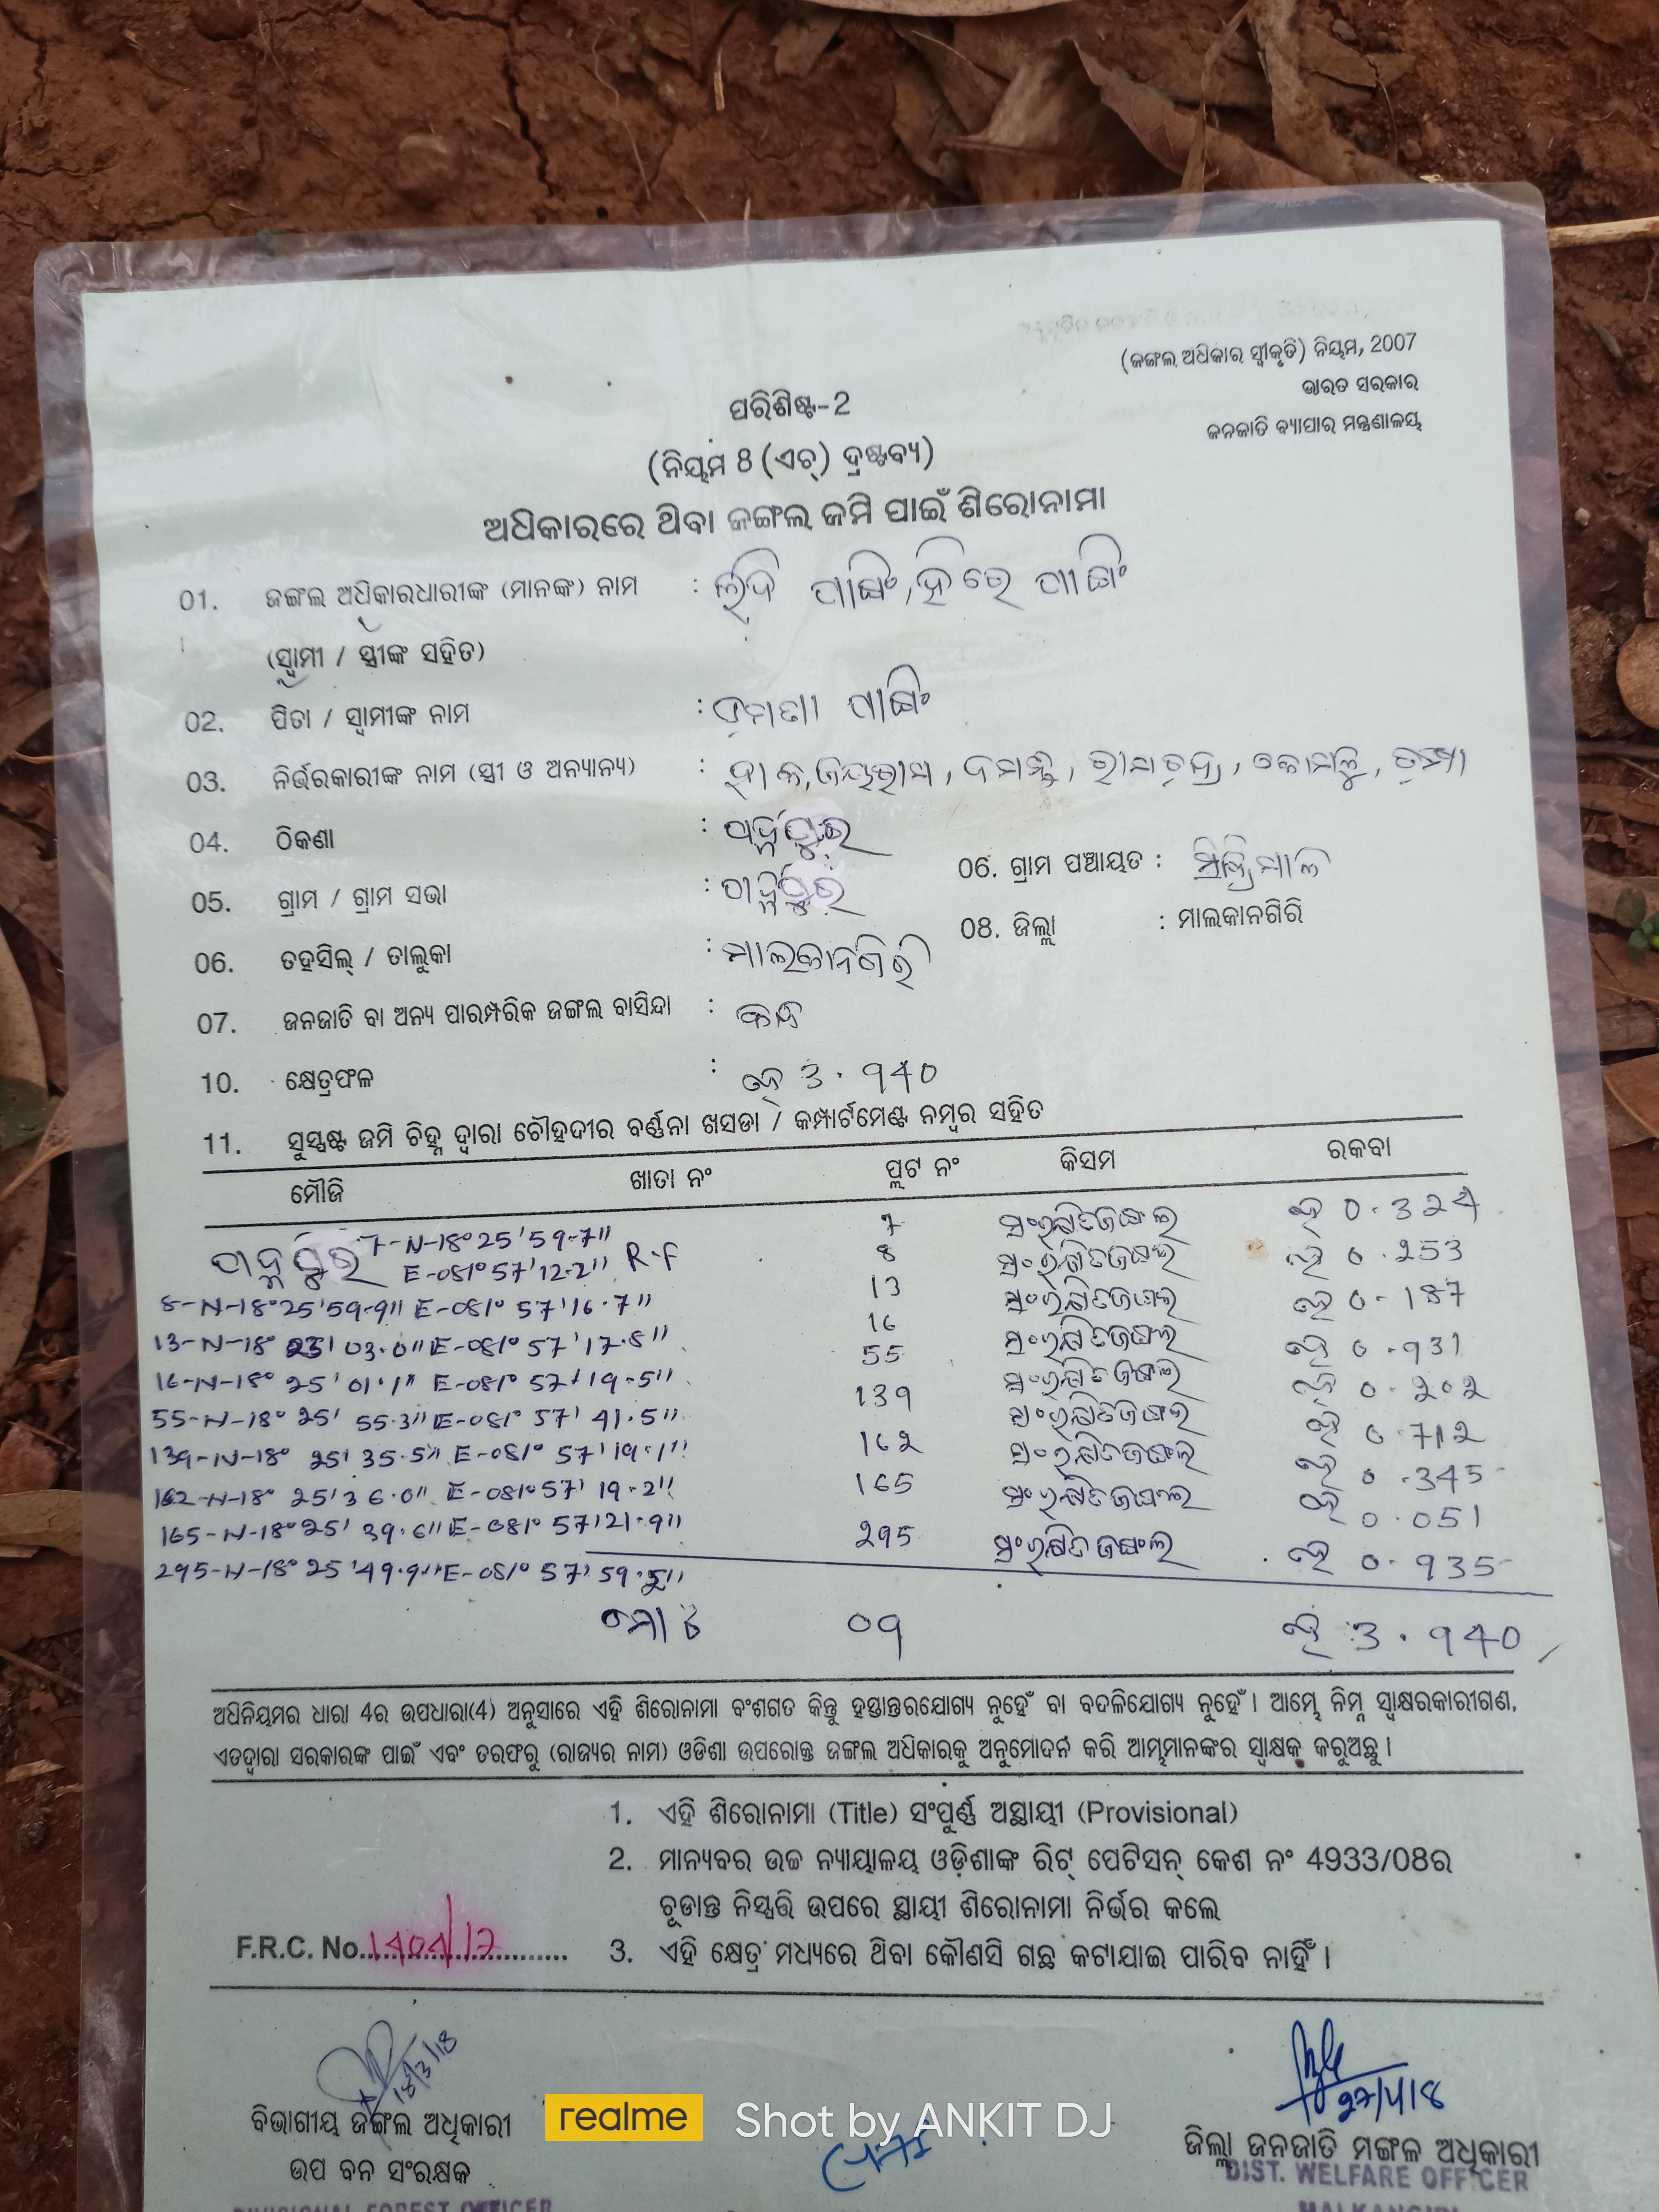 (ଜଙ୍ଗଲ ଅଧିକାର ସ୍ୱୀକୃତି) ନିୟମ, 2007
ଭାରତ ସରକାର
ଜନଜାତି ବ୍ୟାପାର ମନ୍ତ୍ରଣାଳୟ
ପରିଶିଷ୍ଟ-2
(ନିୟମ 8 (ଏଚ୍) ଦ୍ରଷ୍ଟବ୍ୟ)
ଅଧିକାରରେ ଥିବା ଜଙ୍ଗଲ ଜମି ପାଇଁ ଶିରୋନାମା
01. ଜଙ୍ଗଲ ଅଧିକାରଧାରୀଙ୍କ (ମାନଙ୍କ) ନାମ :
(ସ୍ୱାମୀ / ସ୍ତ୍ରୀଙ୍କ ସହିତ)
02. ପିତା / ସ୍ୱାମୀଙ୍କ ନାମ :
03. ନିର୍ଭରକାରୀଙ୍କ ନାମ (ସ୍ତ୍ରୀ ଓ ଅନ୍ୟାନ୍ୟ) :
04. ଠିକଣା :
05. ଗ୍ରାମ / ଗ୍ରାମ ସଭା : 06. ଗ୍ରାମ ପଞ୍ଚାୟତ :
06. ତହସିଲ୍ / ତାଲୁକା : ମାଲକାନଗିରି 08. ଜିଲ୍ଲା : ମାଲକାନଗିରି
07. ଜନଜାତି ବା ଅନ୍ୟ ପାରମ୍ପରିକ ଜଙ୍ଗଲ ବାସିନ୍ଦା :
10. କ୍ଷେତ୍ରଫଳ : ହେ 3.940
11. ସୁସ୍ପଷ୍ଟ ଜମି ଚିହ୍ନ ଦ୍ୱାରା ଚୌହଦୀର ବର୍ଣ୍ଣନା ଖସଡା / କମ୍ପାର୍ଟମେଣ୍ଟ ନମ୍ବର ସହିତ
ମୌଜି ଖାତା ନଂ ପ୍ଲଟ ନଂ କିସମ ରକବା
7-N-18° 25' 59.7" 7 ସଂରକ୍ଷିତ ଜଙ୍ଗଲ ହେ 0.324
E-081° 57' 12.2" R.F 8 ସଂରକ୍ଷିତ ଜଙ୍ଗଲ ହେ 0.253
8-N-18° 25' 59.9" E-081° 57' 16.7" 13 ସଂରକ୍ଷିତ ଜଙ୍ଗଲ ହେ 0.187
13-N-18° 03.0" E-081° 57' 17.8" 16 ସଂରକ୍ଷିତ ଜଙ୍ଗଲ ହେ 0.931
16-N-18° 25' 01.1" E-081° 57' 19.5" 55 ସଂରକ୍ଷିତ ଜଙ୍ଗଲ ହେ 0.202
55-N-18° 25' 55.3" E-081° 57' 41.5" 139 ସଂରକ୍ଷିତ ଜଙ୍ଗଲ ହେ 0.712
139-N-18° 25' 35.5" E-081° 57' 19.1" 162 ସଂରକ୍ଷିତ ଜଙ୍ଗଲ ହେ 0.345
162-N-18° 25' 36.0" E-081° 57' 19.2" 165 ସଂରକ୍ଷିତ ଜଙ୍ଗଲ ହେ 0.051
165-N-18° 25' 39.6" E-081° 57' 21.9" 295 ସଂରକ୍ଷିତ ଜଙ୍ଗଲ ହେ 0.935
295-N-18° 25' 49.9" E-081° 57' 59.5"
ମୋଟ 09 ହେ 3.940
ଅଧିନିୟମର ଧାରା 4ର ଉପଧାରା(4) ଅନୁସାରେ ଏହି ଶିରୋନାମା ବଂଶଗତ କିନ୍ତୁ ହସ୍ତାନ୍ତରଯୋଗ୍ୟ ନୁହେଁ ବା ବଦଳିଯୋଗ୍ୟ ନୁହେଁ । ଆମ୍ଭେ ନିମ୍ନ ସ୍ୱାକ୍ଷରକାରୀଗଣ,
ଏତଦ୍ୱାରା ସରକାରଙ୍କ ପାଇଁ ଏବଂ ତରଫରୁ (ରାଜ୍ୟର ନାମ) ଓଡିଶା ଉପରୋକ୍ତ ଜଙ୍ଗଲ ଅଧିକାରକୁ ଅନୁମୋଦନ କରି ଆମ୍ଭମାନଙ୍କର ସ୍ୱାକ୍ଷର କରୁଅଛୁ ।
1. ଏହି ଶିରୋନାମା (Title) ସଂପୂର୍ଣ୍ଣ ଅସ୍ଥାୟୀ (Provisional)
2. ମାନ୍ୟବର ଉଚ୍ଚ ନ୍ୟାୟାଳୟ ଓଡ଼ିଶାଙ୍କ ରିଟ୍ ପେଟିସନ୍ କେଶ ନଂ 4933/08ର
ଚୂଡାନ୍ତ ନିସ୍ପତ୍ତି ଉପରେ ସ୍ଥାୟୀ ଶିରୋନାମା ନିର୍ଭର କଲେ
F.R.C. No. 3. ଏହି କ୍ଷେତ୍ର ମଧ୍ୟରେ ଥିବା କୌଣସି ଗଛ କଟାଯାଇ ପାରିବ ନାହିଁ ।
18/3/18 27/4/8
ବିଭାଗୀୟ ଜଙ୍ଗଲ ଅଧିକାରୀ ଜିଲ୍ଲା ଜନଜାତି ମଙ୍ଗଳ ଅଧିକାରୀ
ଉପ ବନ ସଂରକ୍ଷକ DIST. WELFARE OFFICER
DIVISIONAL FOREST OFFICER MALKANGIRI
realme Shot by ANKIT DJ